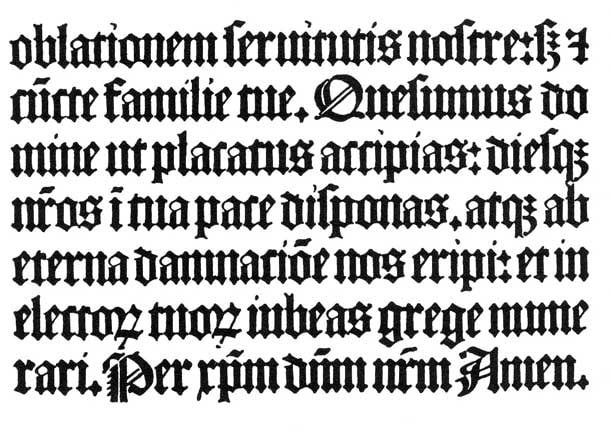 oblationem seruitutis nostre: sꝫ ⁊
cūcte familie tue. Quesumus do
mine ut placatus accipias: diesqꝫ
nr̄os ī tua pace disponas. atqꝫ ab
eterna damnaciōe nos eripi: et in
electoꝝ tuoꝝ iubeas grege mune
rari. Per xp̄m dn̄m nr̄m Amen.